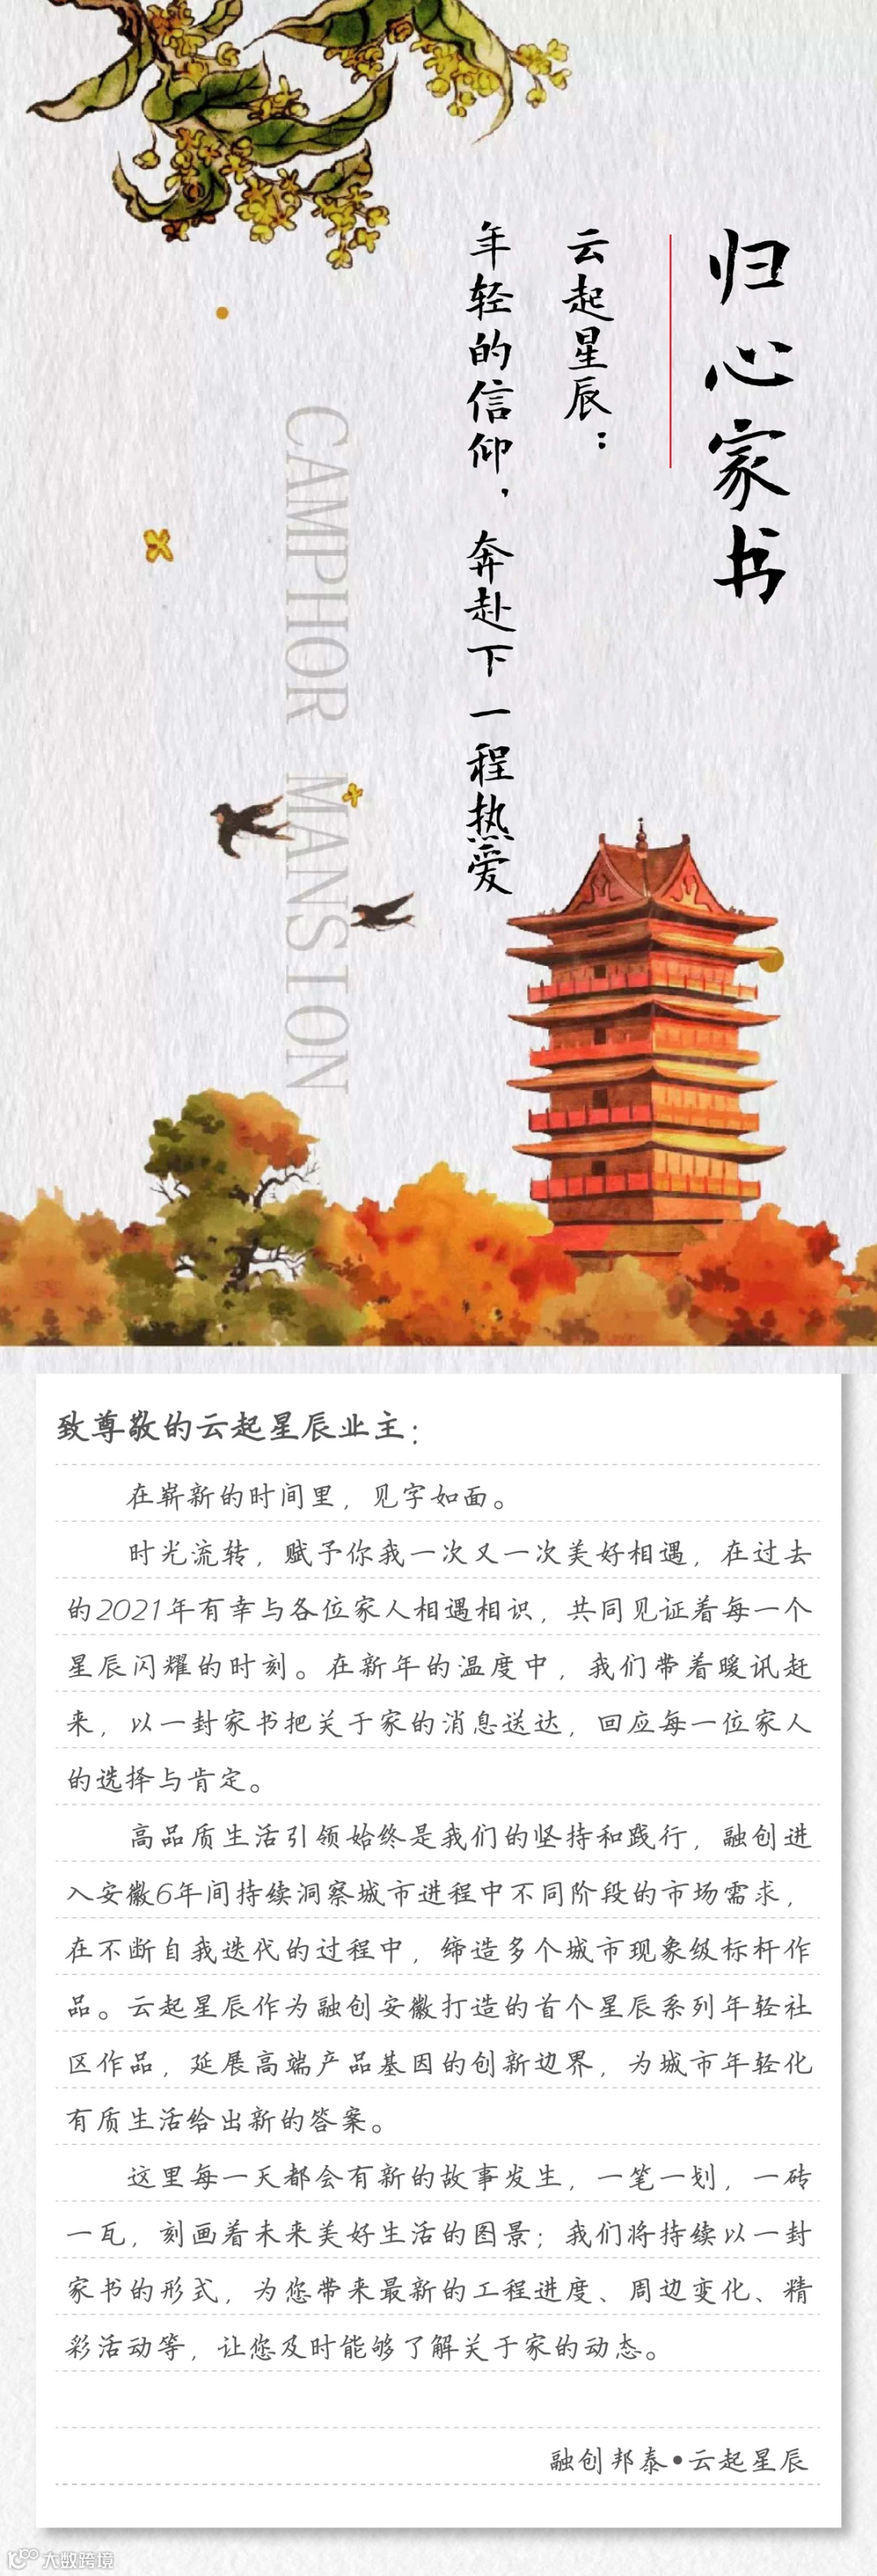 归心家书
云起星辰：
年轻的信仰，奔赴下一程热爱
CAMPHOR MANSION
致尊敬的云起星辰业主：
在崭新的时间里，见字如面。
时光流转，赋予你我一次又一次美好相遇，在过去
的2021年有幸与各位家人相遇相识，共同见证着每一个
星辰闪耀的时刻。在新年的温度中，我们带着暖讯赶
来，以一封家书把关于家的消息送达，回应每一位家人
的选择与肯定。
高品质生活引领始终是我们的坚持和践行，融创进
入安徽6年间持续洞察城市进程中不同阶段的市场需求，
在不断自我迭代的过程中，缔造多个城市现象级标杆作
品。云起星辰作为融创安徽打造的首个星辰系列年轻社
区作品，延展高端产品基因的创新边界，为城市年轻化
有质生活给出新的答案。
这里每一天都会有新的故事发生，一笔一划，一砖
一瓦，刻画着未来美好生活的图景；我们将持续以一封
家书的形式，为您带来最新的工程进度、周边变化、精
彩活动等，让您及时能够了解关于家的动态。
融创邦泰•云起星辰
大数跨境